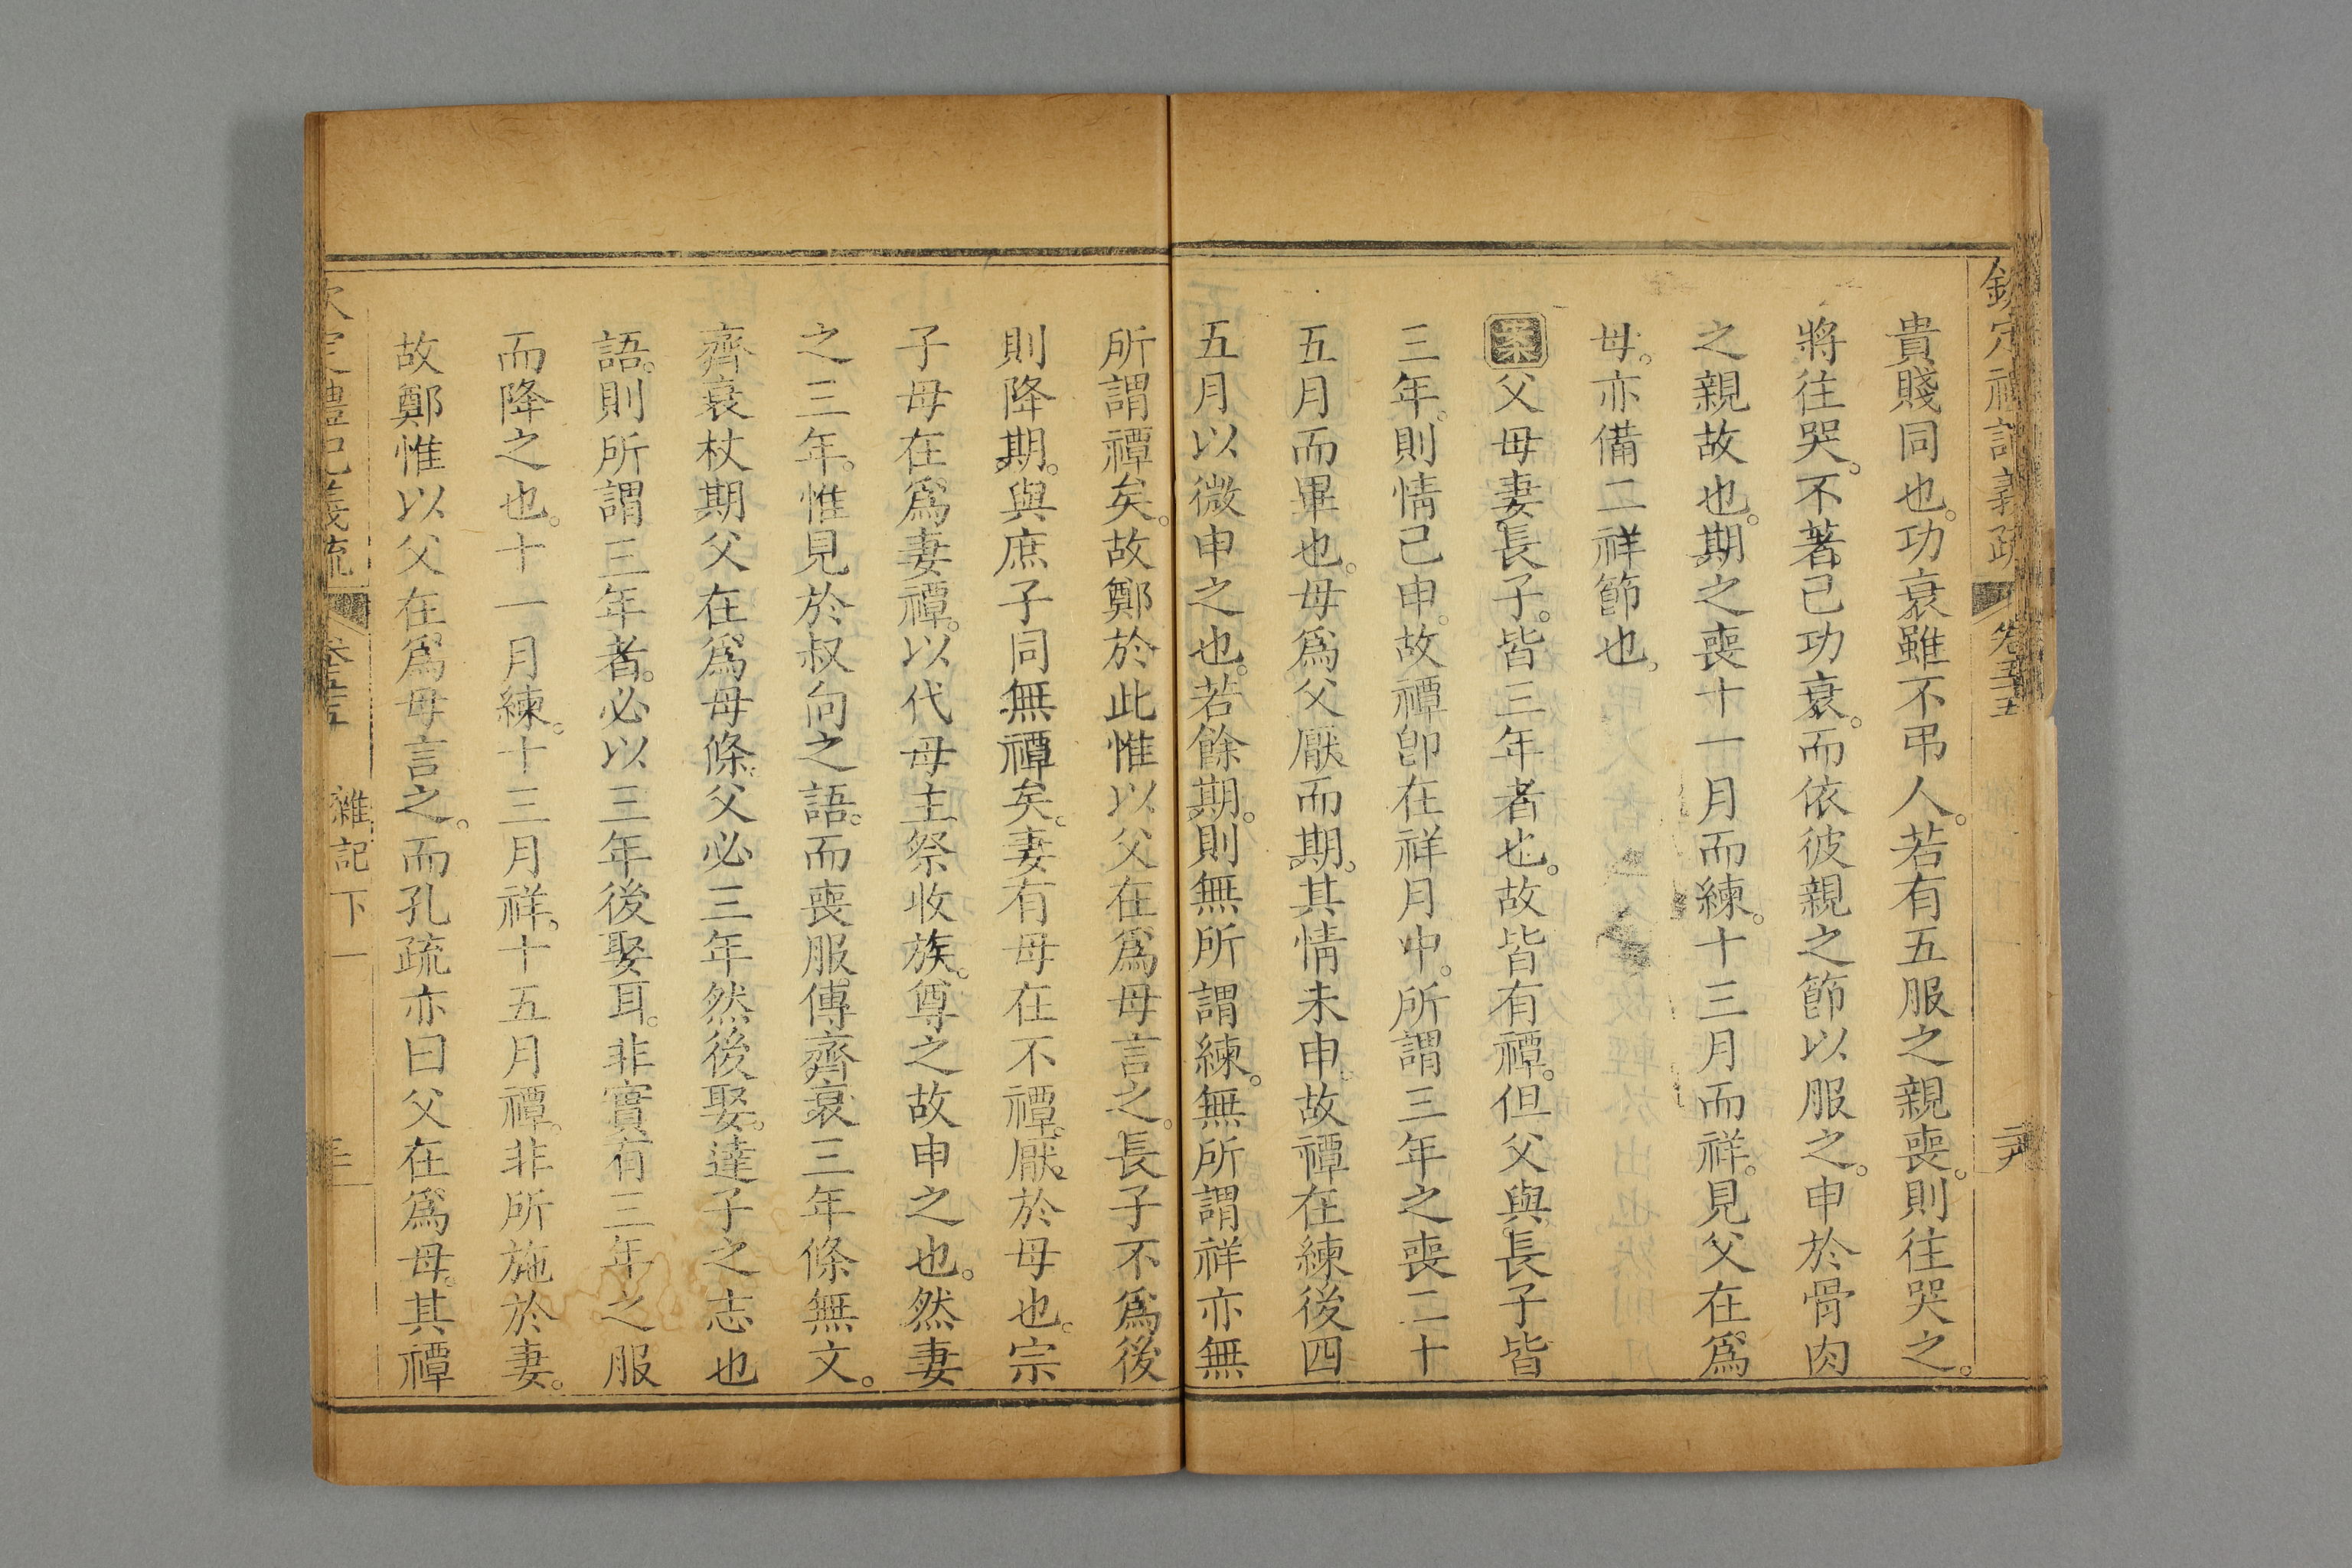 欽定禮記義疏 卷五十五
貴賤同也。功衰雖不弔人。若有五服之親喪。則往哭之。
將往哭。不著己功衰。而依彼親之節以服之。申於骨肉
之親故也。期之喪十一月而練。十三月而祥。見父在爲
母。亦備二祥節也。
案父母妻長子。皆三年者也。故皆有禫。但父與長子皆
三年。則情己申。故禫卽在祥月中。所謂三年之喪二十
五月而畢也。母爲父厭而期。其情未申。故禫在練後四
五月以微申之也。若餘期。則無所謂練。無所謂祥亦無
所謂禫矣。故鄭於此惟以父在爲母言之。長子不爲後
則降期。與庶子同無禫矣。妻有母在不禫。厭於母也。宗
子母在。爲妻禫。以代母主祭收族。尊之故申之也。然妻
之三年。惟見於叔向之語。而喪服傳齊衰三年條無文。
齊衰杖期父在爲母條。父必三年然後娶。達子之志也
語。則所謂三年者。必以三年後娶耳。非實有三年之服
而降之也。十一月練。十三月祥。十五月禫。非所施於妻。
故鄭惟以父在爲母言之。而孔疏亦曰父在爲母。其禫
定禮記義疏 雜記下一